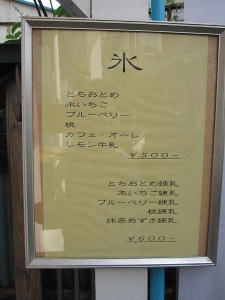 氷
とちおとめ
木いちご
ブルーベリー
桃
カフェ・オーレ
レモン牛乳
￥500-
とちおとめ練乳
木いちご練乳
ブルーベリー練乳
桃練乳
抹茶あずき練乳
￥600-